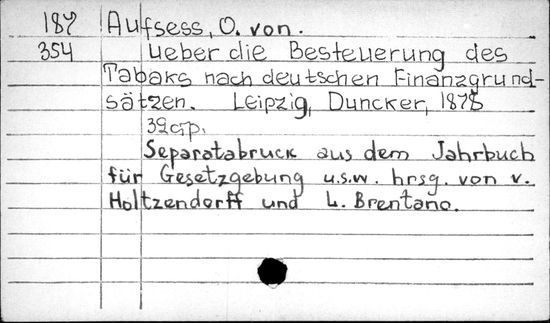 187 Aufsess, O. von.
354 Ueber die Besteuerung des
Tabaks nach deutschen Finanzgrund-
sätzen. Leipzig, Duncker, 1878
Separatabruck aus dem Jahrbuch
für Gesetzgebung u.s.w. hrsg. von v.
Holtzendorff und L. Brentano.